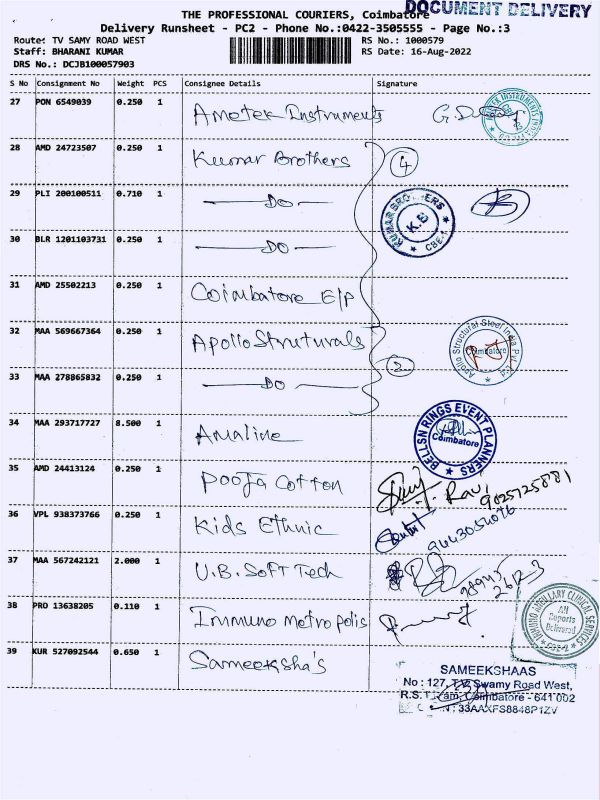 THE PROFESSIONAL COURIERS, Coimbatore
DOCUMENT DELIVERY
Delivery Runsheet - PC2 - Phone No.:0422-3505555 - Page No.:3
Route: TV SAMY ROAD WEST
RS No.: 1000579
Staff: BHARANI KUMAR
RS Date: 16-Aug-2022
DRS No.: DCJB100057903
S No Consignment No Weight PCS Consignee Details Signature
27 PON 6549039 0.250 1 Ametek Instruments
28 AMD 24723507 0.250 1 Kumar Brothers 4
29 PLI 200100511 0.710 1 DO
KUMAR BROTHERS K.B CBE-1
30 BLR 1201103731 0.250 1 DO
31 AMD 25502213 0.250 1 Coimbatore E/P
32 MAA 569667364 0.250 1 Apollo Struturals 2
Apollo Structural Steel India Pvt. Ltd Coimbatore
33 MAA 278865832 0.250 1 DO
34 MAA 293717727 8.500 1 Amaline
BELLSN RINGS EVENT PLANNERS Coimbatore
35 AMD 24413124 0.250 1 Pooja Cotton
36 VPL 938373766 0.250 1 Kids Ethnic
37 MAA 567242121 2.000 1 U.B. Soft Tech
38 PRO 13638205 0.110 1 Immuno Metropolis
IMMUNO ANCILLARY CLINICAL SERVICES All Reports Delivered CBE-2
39 KUR 527092544 0.650 1 Sameeksha's
SAMEEKSHAAS
No : 127, T.V. Swamy Road West,
R.S. Coimbatore - 641 002
: 33AAXFS8848P1ZV